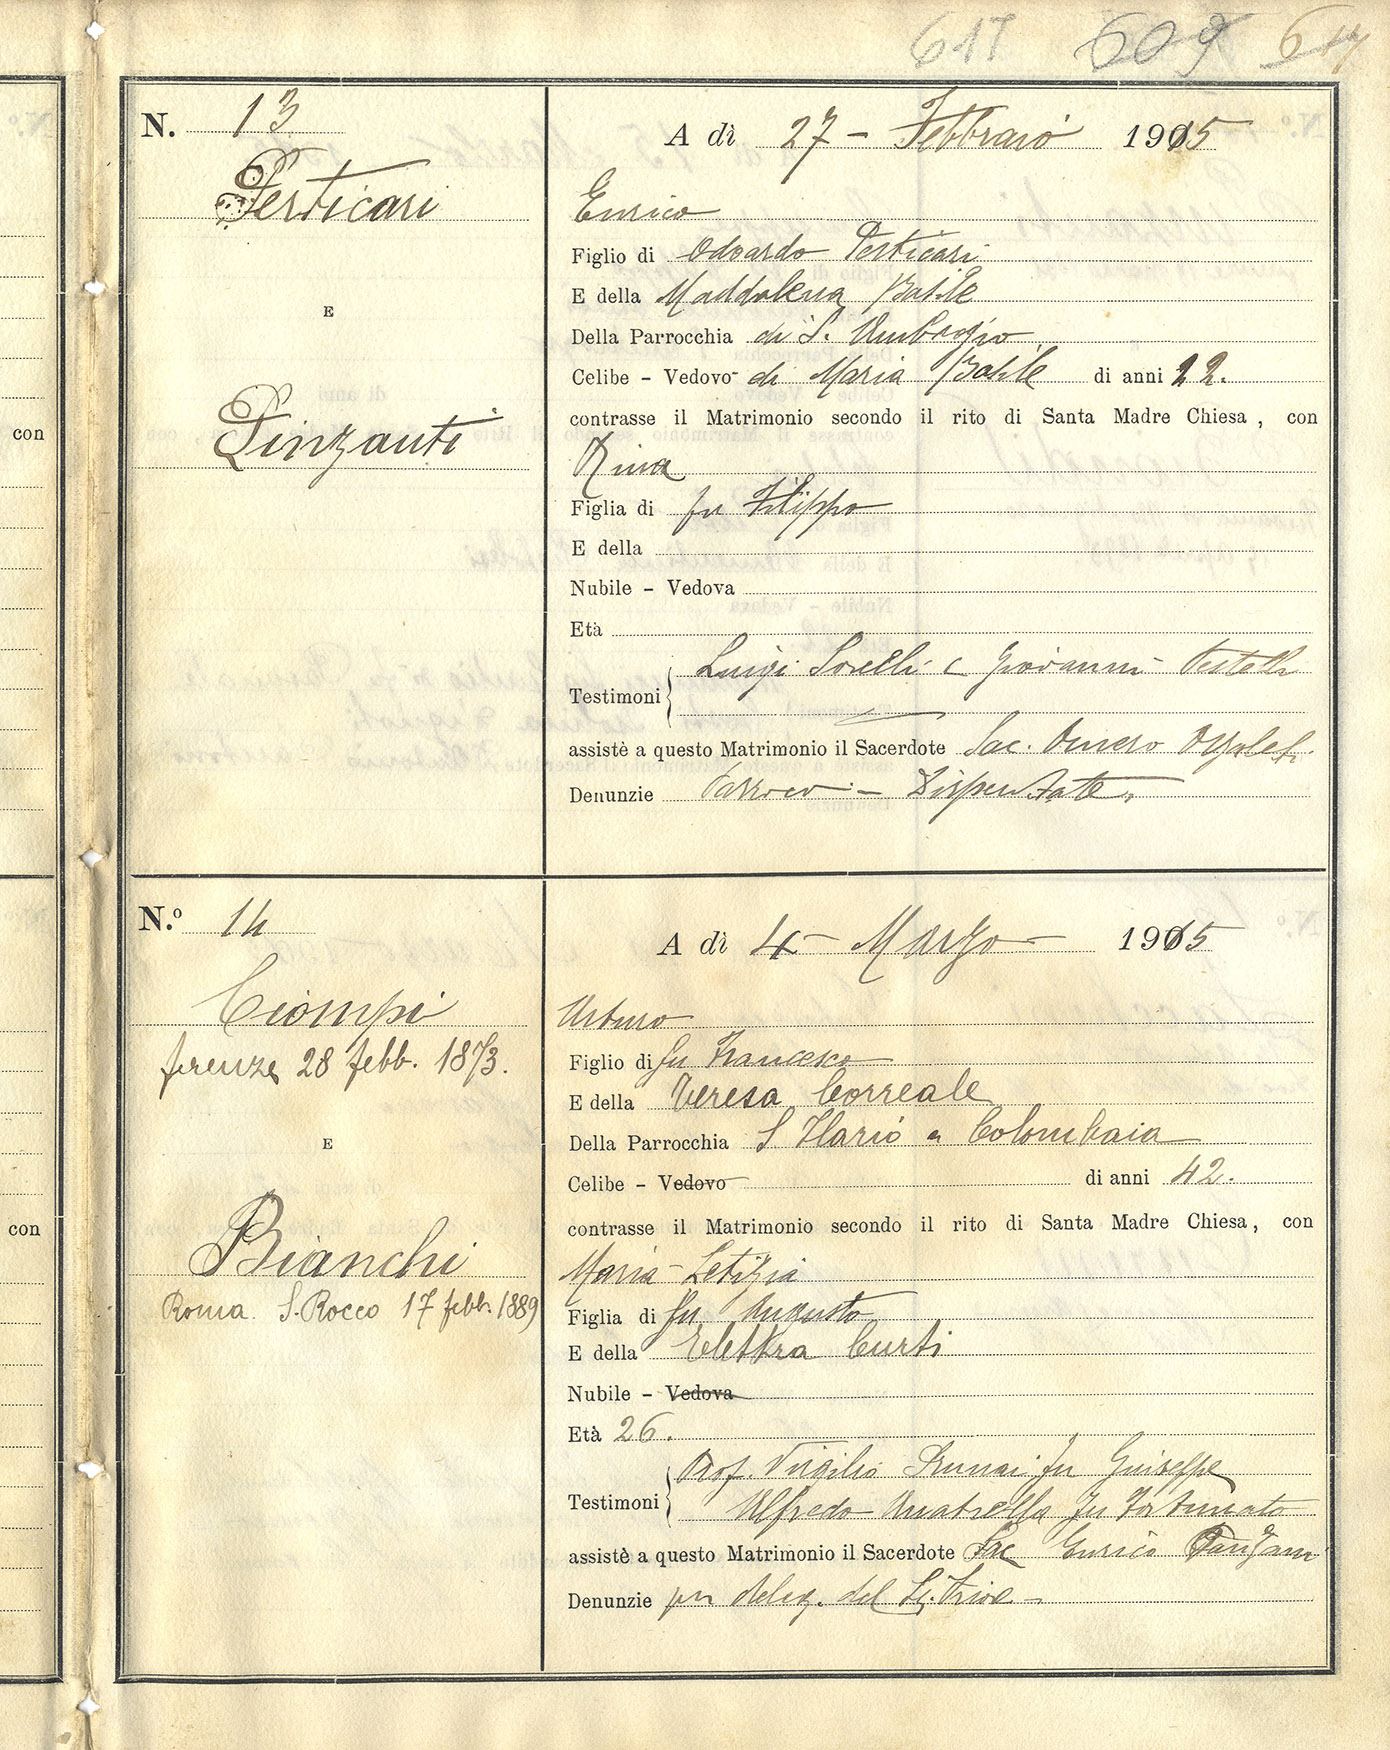 617 609 614
N. 13
A dì 27 - Febbraio 1915
Perticari
Enrico
Figlio di Odoardo Perticari
E della Maddalena Batile
E
Della Parrocchia di S. Ambrogio
Celibe - Vedovo di Maria Batile di anni 22.
contrasse il Matrimonio secondo il rito di Santa Madre Chiesa, con
Pinzauti
Rina
Figlia di fu Filippo
E della
Nubile - Vedova
Età
Testimoni Luigi Sorelli e Giovanni
assistè a questo Matrimonio il Sacerdote Sac. Omero
Denunzie Parroco - Dispensate.
con
N.º 14
A dì 4 - Marzo - 1915
Ciompi
Arturo
firenze 28 febb. 1873.
Figlio di fu Francesco
E della Teresa Correale
E
Della Parrocchia S Ilario a Colombaia
Celibe - Vedovo di anni 42.
contrasse il Matrimonio secondo il rito di Santa Madre Chiesa, con
Bianchi
Maria Letizia
Roma. S. Rocco 17 febb. 1889
Figlia di fu Augusto
E della Elettra Curti
Nubile - Vedova
Età 26.
Testimoni Prof. Virgilio fu Guiseppe
Alfredo fu Fortunato
assistè a questo Matrimonio il Sacerdote Sac Enrico
Denunzie per deleg. del
con